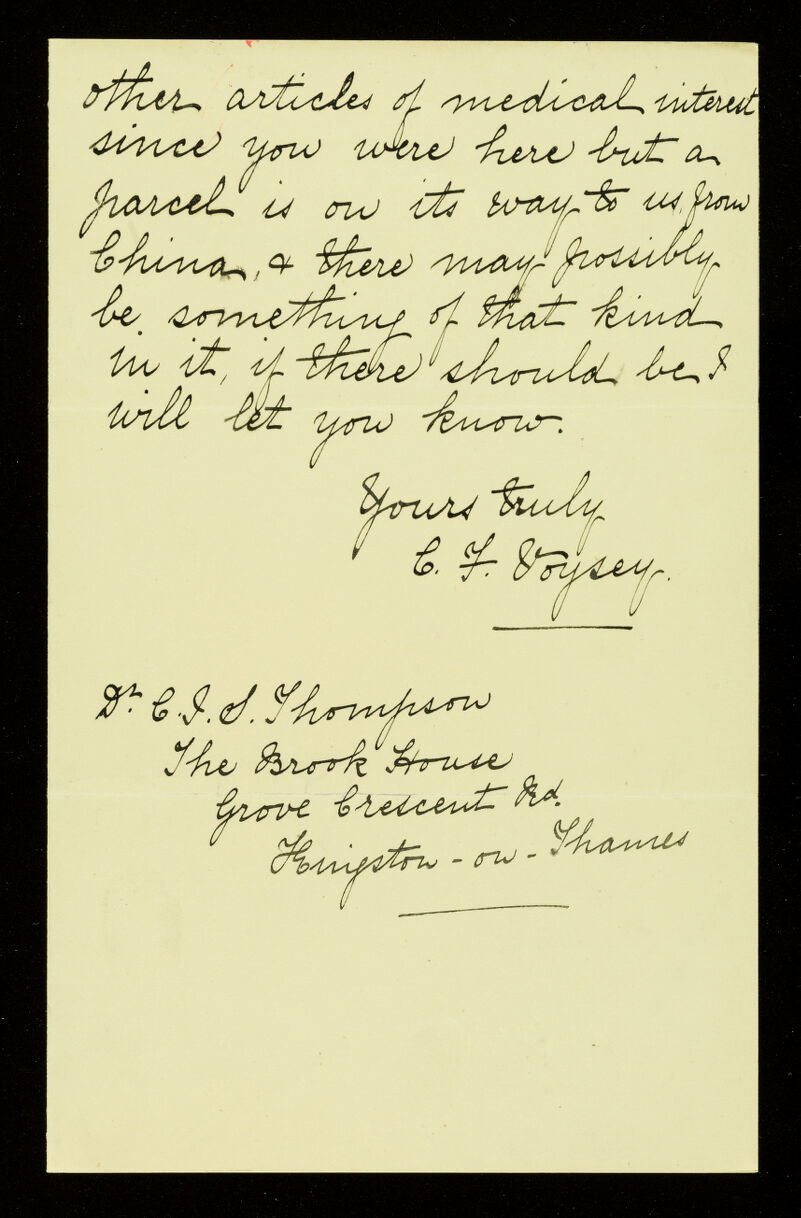 other articles of medical interest
since you were here but a
parcel is on its way to us from
China, & there may possibly
be something of that kind
in it, if there should be I
will let you know.
Yours truly
C. F. Voysey.
Dr. C. J. S. Thompson
The Brook House
Grove Crescent Rd.
Kingston - on - Thames